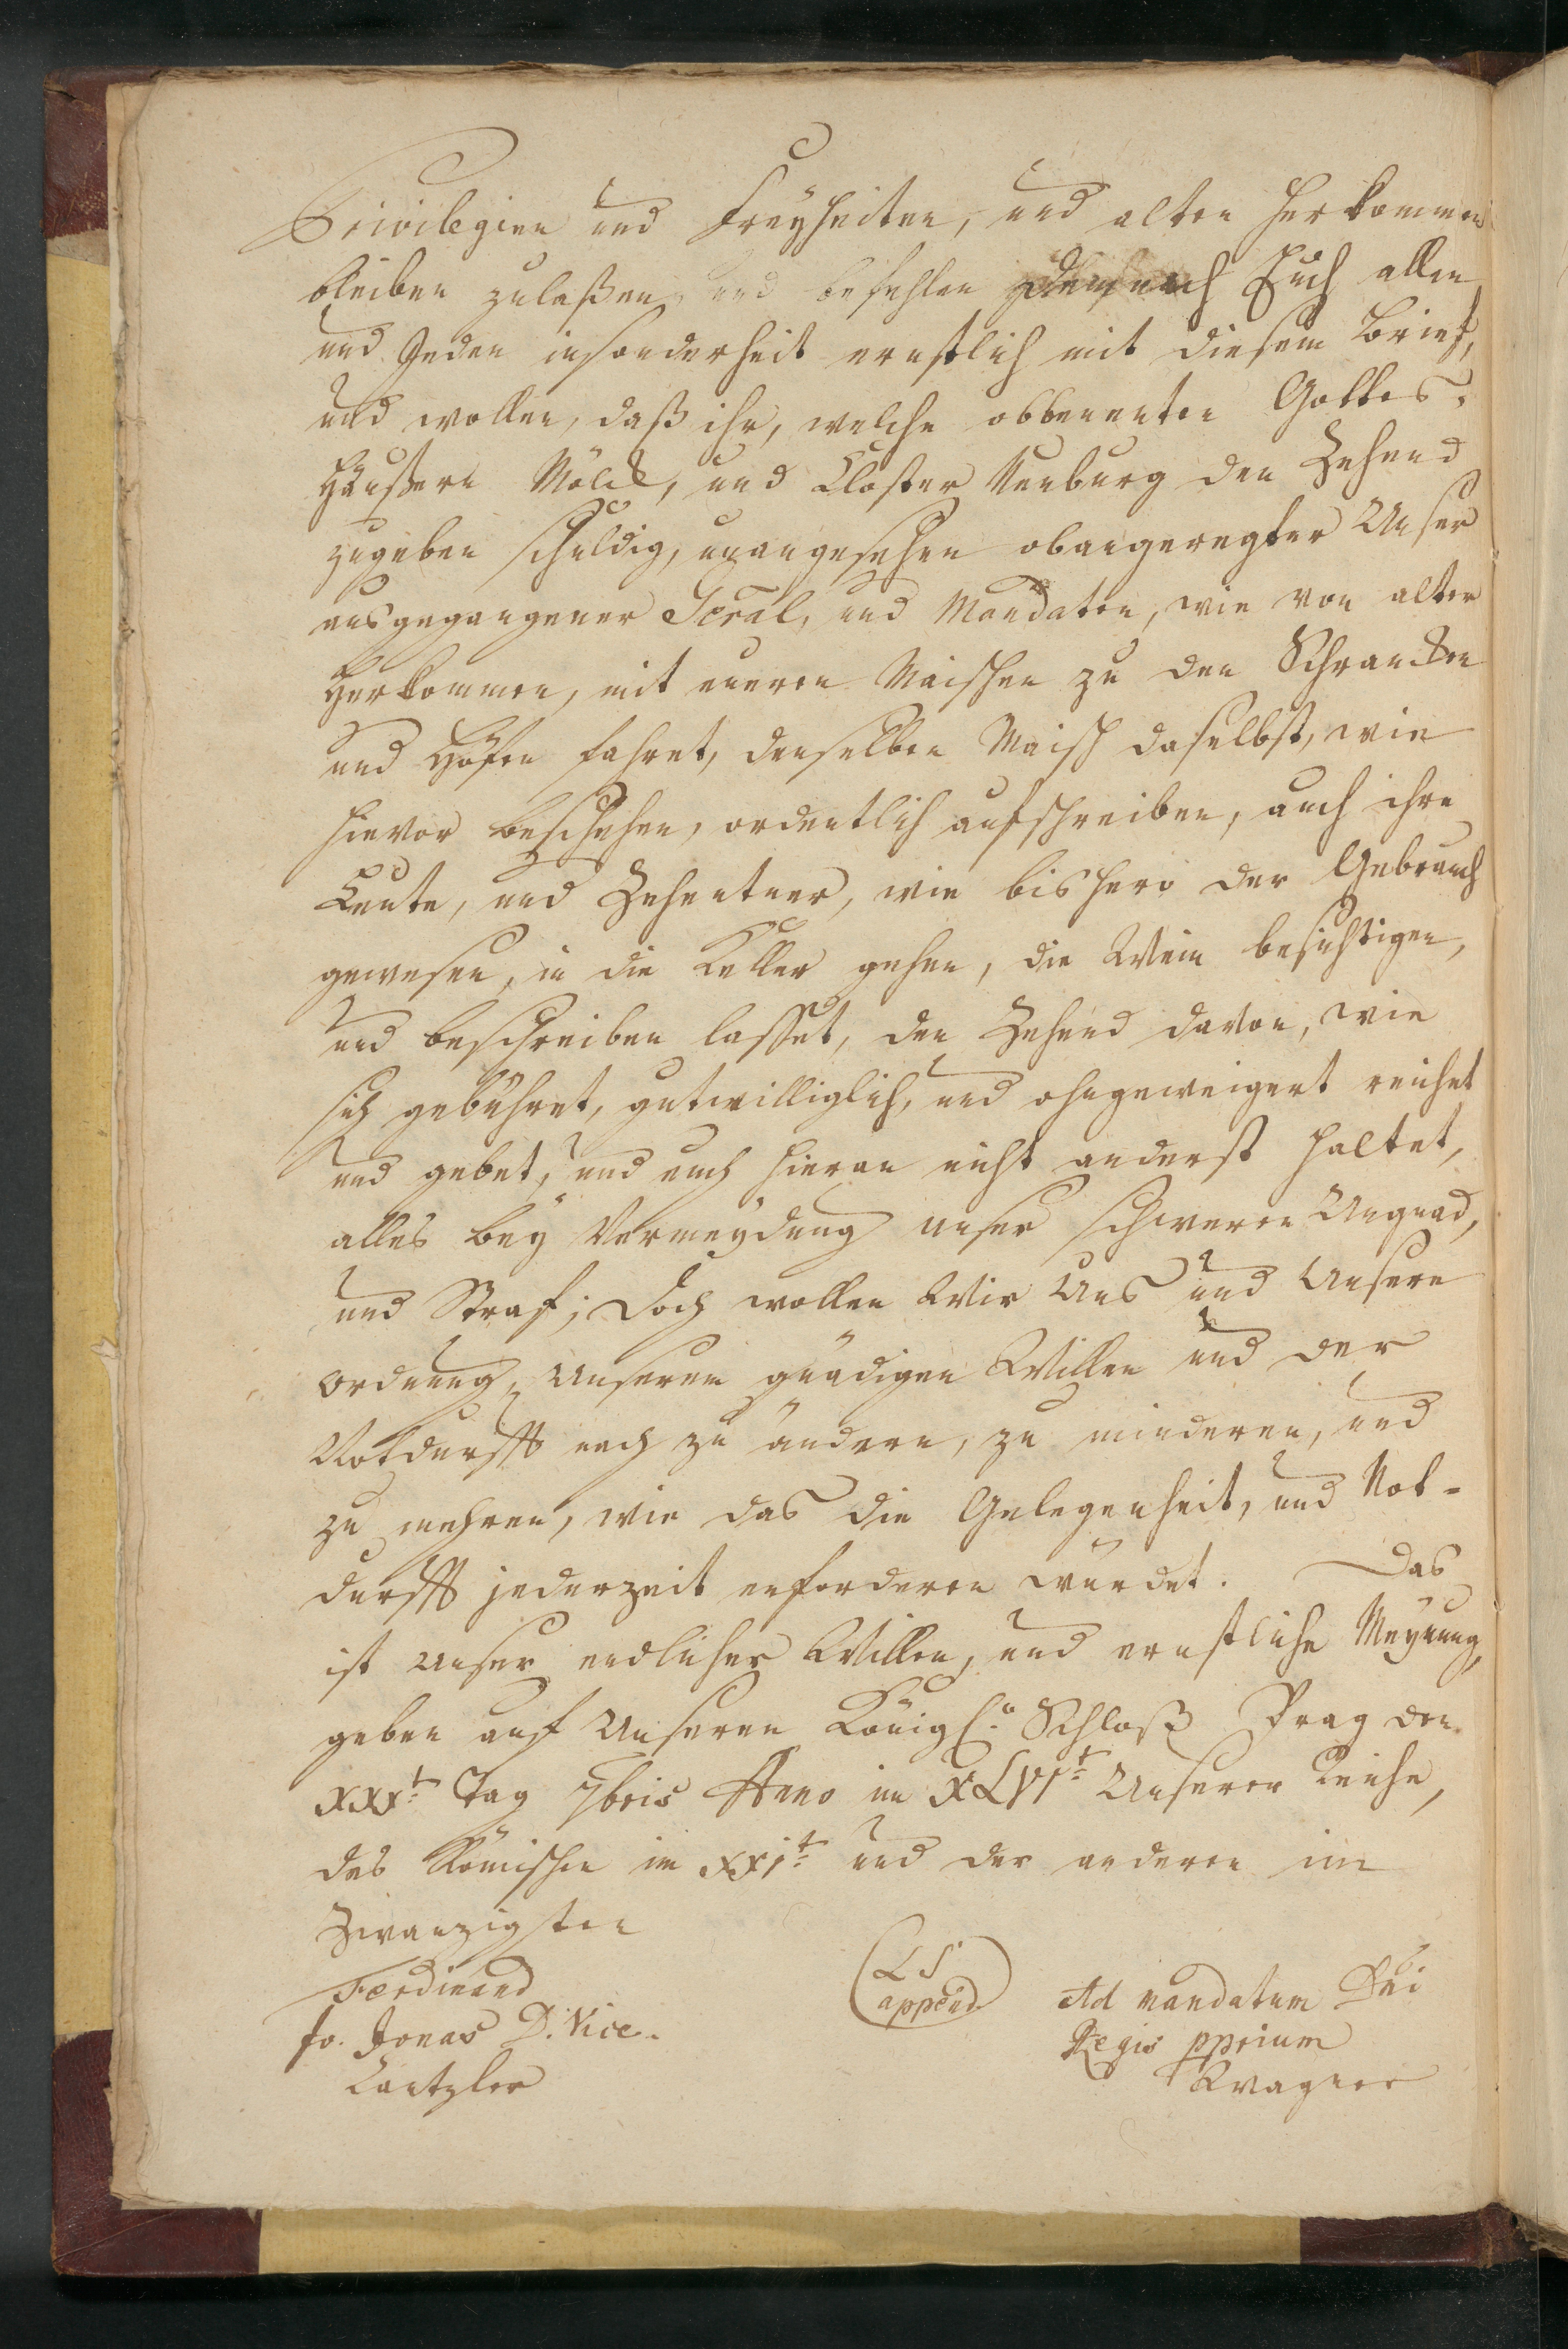 Privilegien und Freyheiten, und alten Herkommen
bleiben zulaßen, und befehlen demnach Euch allen
und Jeden insonderheit ernstlich mit diesem Brief,
und wollen, daß ihr, welche obbenenten Gottes-
Häußern Mölck, und Closter Neuburg den Zehend
zugeben schuldig, unangesehen obangeregter Unser
ausgegangener Gṽral, und Mandaten, wie von alter
Herkommen, mit eueren Maischen zu den Schrancken
und Höfen fahret, denselben Maisch daselbst, wie
hievor beschehen, ordentlich aufschreiben, auch ihre
Leute, und Zehentner, wie bishero der Gebrauch
gewesen, in die Keller gehen, die Wein besichtigen,
und beschreiben lasset, den Zehend davon, wie
sich gebühret, gutwilliglich, und ohngeweigert reichet
und gebet, und euch hieran nicht anderst haltet,
alles bey Vermeydung unser schweren Ungnad,
und Straf; Doch wollen Wir Uns und Unsere
Ordnung, Unserem gnädigen Willen und der
Notdurfft nach zu ändern, zu minderen, und
zu mehren, wie das die Gelegenheit, und Not-
durfft jederzeit erforderen wurdet. Das
ist Unser endlicher Willen, und ernstliche Meynung,
geben auf Unseren Königl. Schloß Prag den
XXXt: Tag 7bris Anno im XLVIt: Unserer Reiche,
des Römischen im XXIt: und der anderen im
Zwanzigsten
Ferdinand
Jo. Jonas D. Vice-
Cantzler
L S
append.
Ad mandatum Dni
Regis pprium
Kwagner